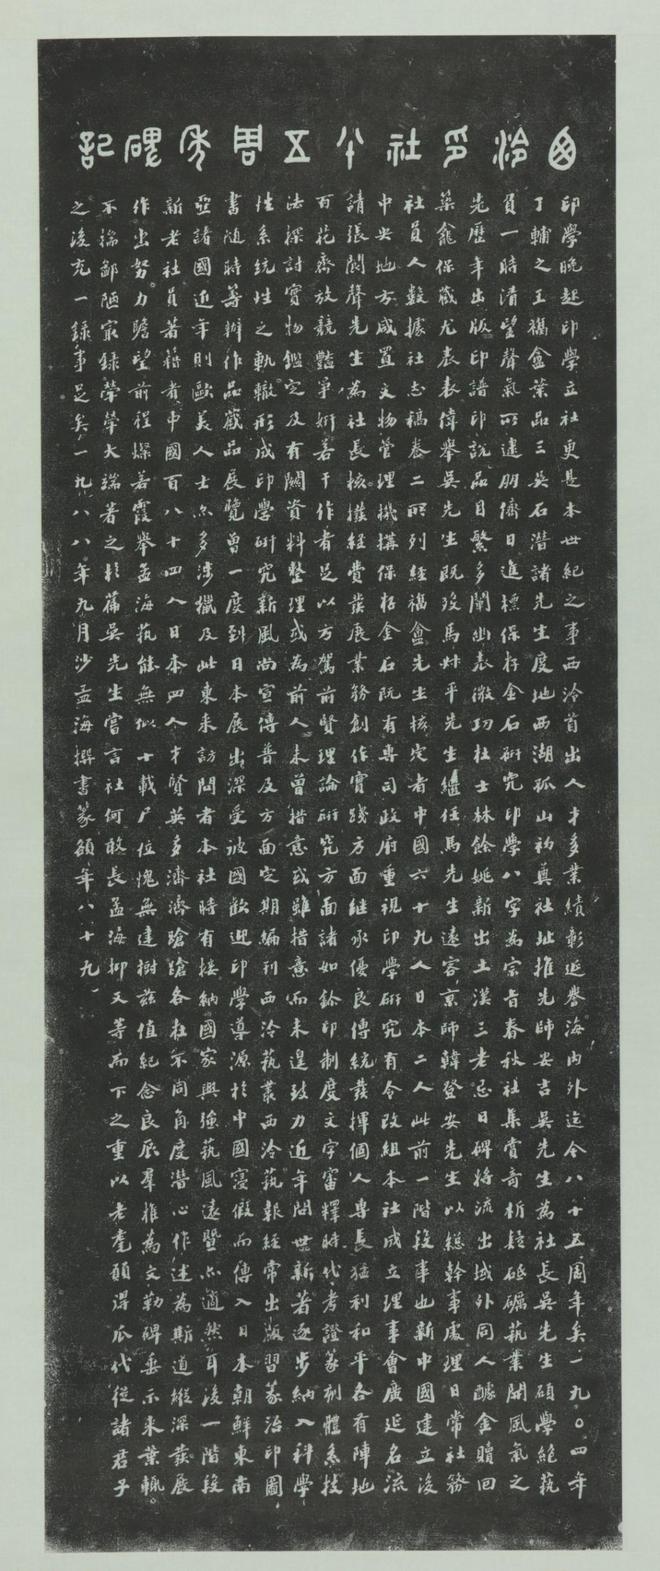 西泠印社八十五周年碑記
印學晚起印學立社更是本世紀之事西泠首出人才多業績彰延譽海內外迄今八十五周年矣一九〇四年
丁輔之王福盦葉品三吳石潛諸先生度地西湖孤山初奠社址推先師安吉吳先生為社長吳先生碩學絕藝
負一時清望聲氣所逮朋儕日進標保存金石研究印學八字為宗旨春秋社集賞奇析疑砥礪藝業開風氣之
先歷年出版印譜印說品目繁多闡幽表微功在士林餘姚新出土漢三老忌日碑將流出域外同人醵金贖回
築龕保藏尤表表偉舉吳先生既歿馬叔平先生繼任馬先生遠客京師韓登安先生以總幹事處理日常社務
社員人數據社志稿卷二所列經福盦先生核定者中國六十九人日本二人此前一階段事也新中國建立後
中央地方咸置文物管理機構保存金石既有專司政府重視印學研究有令改組本社成立理事會廣延名流
請張閬聲先生為社長核撥經費發展業務創作實踐方面繼承優良傳統發揮個人專長猛利和平各有陣地
百花齊放競豔爭妍若干作者足以方駕前賢理論研究方面諸如鉨印制度文字審釋時代考證篆刻體系技
法探討實物鑑定及有關資料整理或為前人未曾措意或雖措意而未遑致力近年問世新著逐步納入科學
性系統性之軌轍形成印學研究新風尚宣傳普及方面定期編刊西泠藝叢西泠藝報經常出版習篆治印圖
書隨時籌辦作品藏品展覽曾一度到日本展出深受彼國歡迎印學導源於中國寖假而傳入日本朝鮮東南
亞諸國近年則歐美人士亦多涉獵及此東來訪問者本社時有接納國家興強藝風遠暨亦適然耳後一階段
新老社員著籍者中國百八十四人日本四人才賢英多濟濟蹌蹌各在不同角度潛心作述為斯道縱深發展
作出努力瞻望前程燦若霞舉孟海藝能無似十載尸位愧無建樹茲值紀念良辰羣推為文勒碑垂示來葉輒
不揣鄙陋㝡錄犖犖大端著之於篇吳先生嘗言社何敢長孟海抑又等而下之重以老耄願得瓜代從諸君子
之後充一錄事足矣一九八八年九月沙孟海撰書篆額年八十九